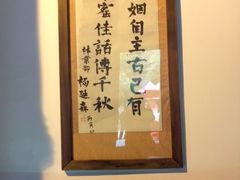 姻自主古已有
蜜佳話傳千秋
林業部
楊延森